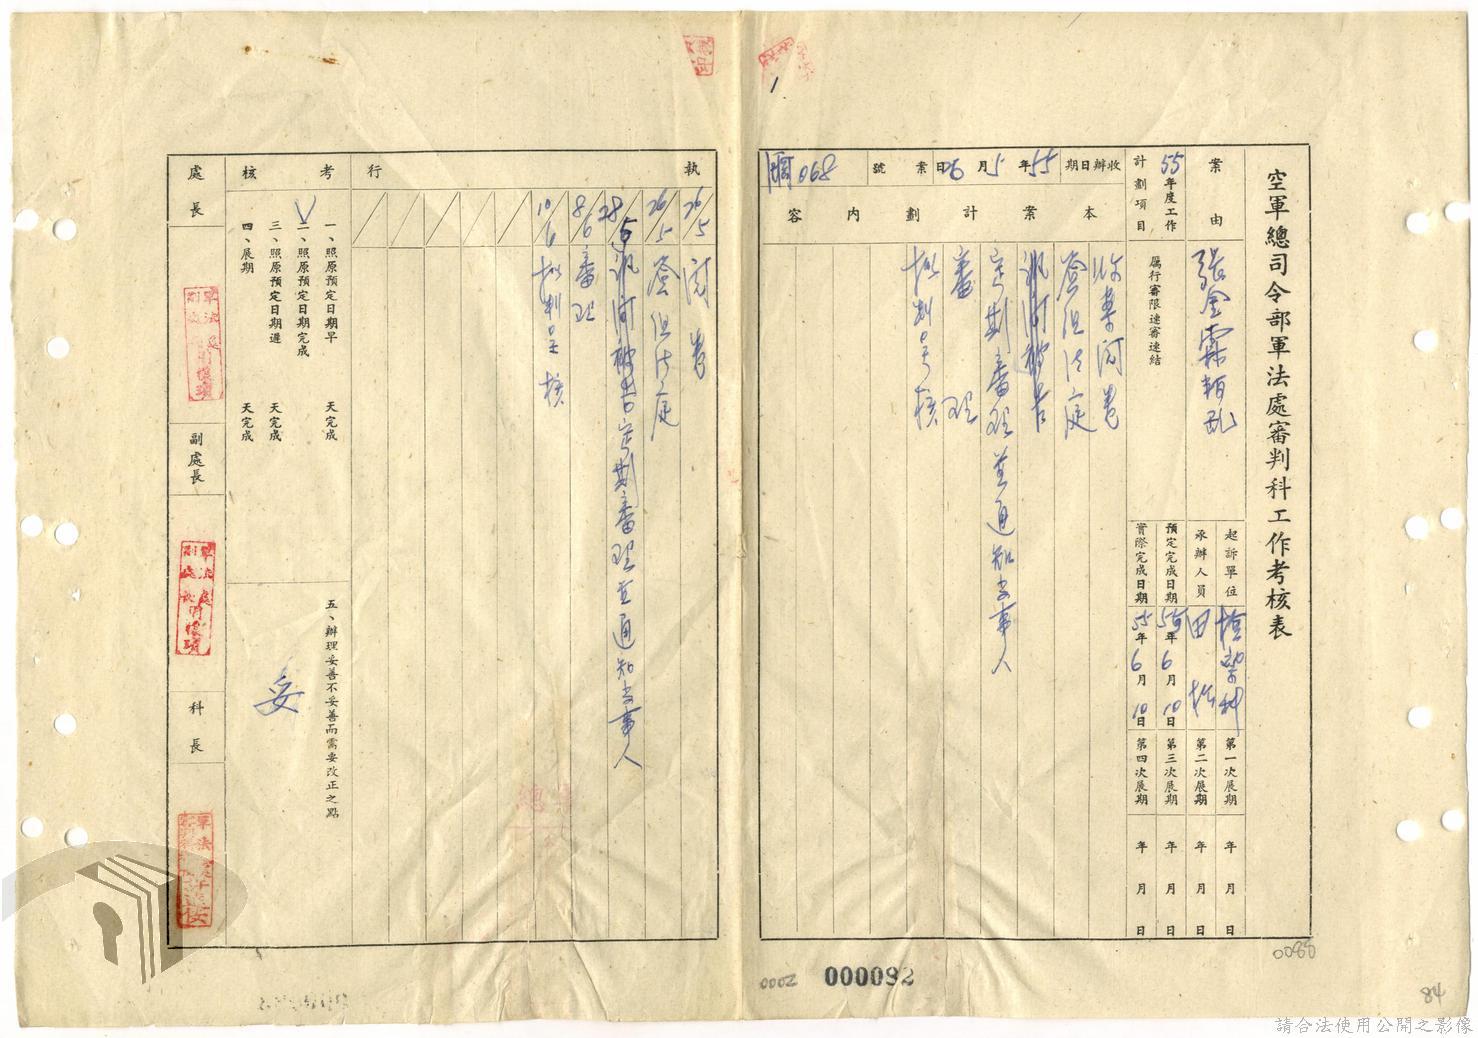 空軍總司令部軍法處審判科工作考核表
案由
張金霖叛亂
起訴單位
檢察科
第一次展期 年 月 日
承辦人員
田
第二次展期 年 月 日
55年度工作計劃項目
厲行審限速審速結
預定完成日期
55年6月10日
第三次展期 年 月 日
實際完成日期
55年6月10日
第四次展期 年 月 日
收辦日期
55年5月26日
案號
068
本案計劃內容
收案閱卷
簽組法庭
訊問被告
定期審理並通知當事人
審理
擬判呈核
執行
26/5 閱卷
26/5 簽組法庭
28/5 訊問被告定期審理並通知當事人
8/6 審理
10/6 擬判呈核
考核
一、照原預定日期早 天完成
二、照原預定日期完成
三、照原預定日期遲 天完成
四、展期 天完成
五、辦理妥善不妥善而需要改正之點
妥
處長
副處長
科長
0002
000092
0088
84
請合法使用公開之影像